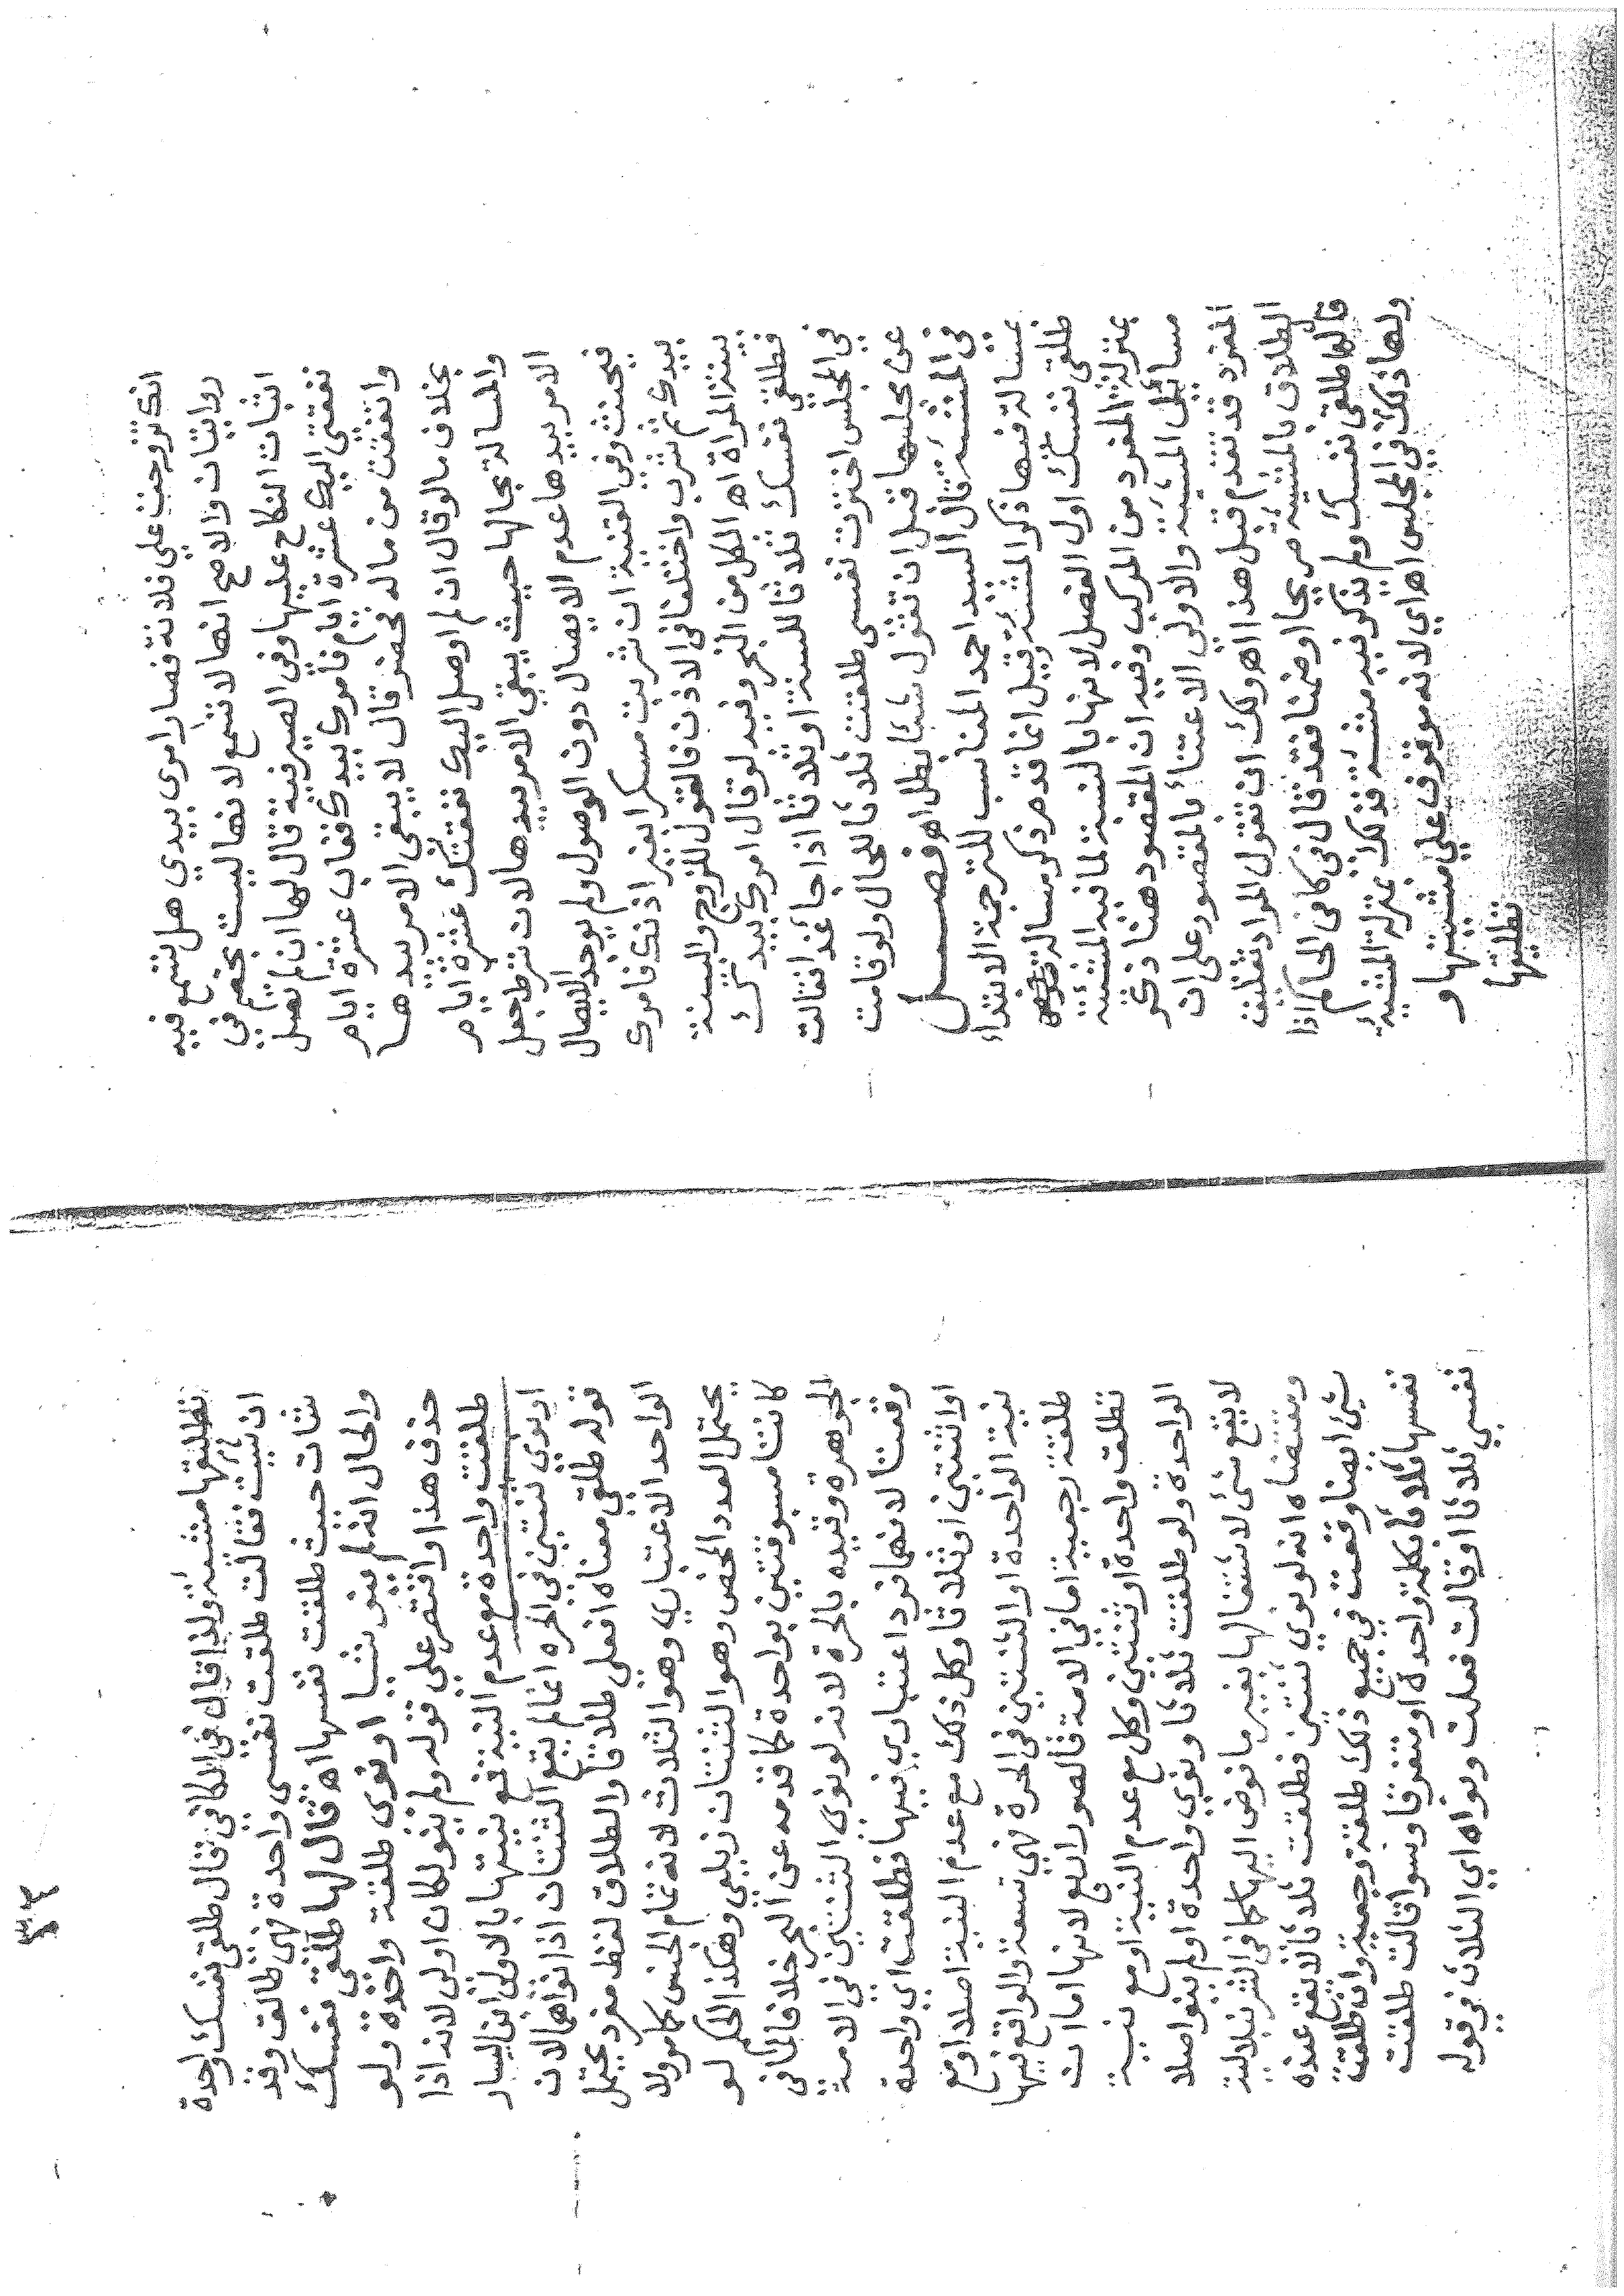 انك تزوجت علي فلانة فصار امري بيدي هل تسمع فيه
روايتان والاصح انها لا تسمع لانها ليست بخصم في
اثبات النكاح عليها وفي الصيرفية قال لها ان لم تصل
نفقتي اليك عشرة ايام فامرك بيدك فغاب عشرة ايام
وانفقت من ماله فحضر قال لا يبقى الامر بيدها
بخلاف ما لو قال ان لم اوصل اليك نفقتك عشرة ايام
والمسالة بحالها حيث يبقي الامر بيدها لان شرط جعل
الامر بيدها عدم الايصال دون الوصول ولم يوجد الايصال
فيحنث وفي القنية ان شربت مسكرا بغير اذنك فامرك
بيدك ثم شرب واختلفا في الاذن فالقول للزوج والبينة
بينة المراة اه الكل من البحر وفيه لو قال امرك بيدك
فطلقي نفسك ثلاثا للسنة او ثلاثا اذا جا غد فقالت
في المجلس اخترت نفسي طلقت ثلاثا للحال ولو قامت
عن مجلسها قبل ان تقول شيئا بطل اه فصـــل
في المشئة قال السيد احمد المناسب للترجمة الابتداء
بمسالة فيها ذكر المشئة وقيل انما قدم ذكر مسالة
طلقي نفسك اول الفصل لانها بالنسبة لما فيه المشيئة
بمنزلة المفرد من المركب وفيه ان المقصود هنا ذكر
مسائل المشيئة والاولي الاعتناء بالمقصود علي ان
المفرد قد تقدم قبل هذا اه ولك ان تقول المراد تفليت
الطلاق بالمشيئة صريحا او ضمنا فقد قال في كافي الحاكم اذا
قال لها طلقي نفسك ولم يذكر فيه مشئة فذلك بمنزلة المشيئة
ولها ذلك في المجلس اه اي لانه موقوف علي مشيئتها و
تطليقها
٤٣
تطليقها مشئة ولذا قال في الكافي قال طلقي نفسك واحدة
ان شيت فقالت طلقت نفسي واحدة فهي طالق وقد
شات حيث طلقت نفسها اه قال لها طلقي نفسك
والحال انه لم ينو شيا او نوى طلقة واحدة ولو
حذف هذا واقتصر علي قوله ولم ينو لكان اولي لانه اذا
طلقت واحدة مع عدم النية تقع بنيتها بالاولى افاده البيار
او نوي ثنتين في الحرة انما لم يقع الثنتان اذا نواهما لان
قوله طلقي معناه افعلي طلاقا والطلاق لفظ مفرد يحتمل
الواحد الاعتباري وهو الثلاث لانه تمام الجنس كما مر ولا
يحتمل العدد المحض وهو الثنتان زيلعي وهكذا الحكم لو
كانتا مسبوقتين بواحدة كما قدمه عن البحر خلافا لما في
الجوهرة وقيده بالحرة لانه لو نوى الثنتين في الامة
وقعتا لانهما فرد اعتباري فيها فطلقت اي واحدة
او اثنتين او ثلاثا وكل ذلك مع عدم النية اصلا او مع
نية الواحدة او الثنتين في الحرة فهي تسعة والواقع فيها
طلقة رجعية اما في الامة فالصور اربع لانها اما ان
تطلق واحدة او ثنتين وكل مع عدم النية او مع نية
الواحدة ولو طلقت ثلاثا ونوي واحدة او لم ينو اصلا
لا يقع شئ لاشتغالها بغير ما فوض اليها كما في الشرنبلالية
ومقتضاه انه لو نوي ثنتين فطلقت ثلاثا لا يقع عنده
شئ ايضا وقعت في جميع ذلك طلقة رجعية وان طلقت
نفسها ثلاثا بكلمة واحدة او متفرقا وسوا قالت طلقت
نفسي ثلاثا او قالت فعلت ونواه اي الثلاث في قوله